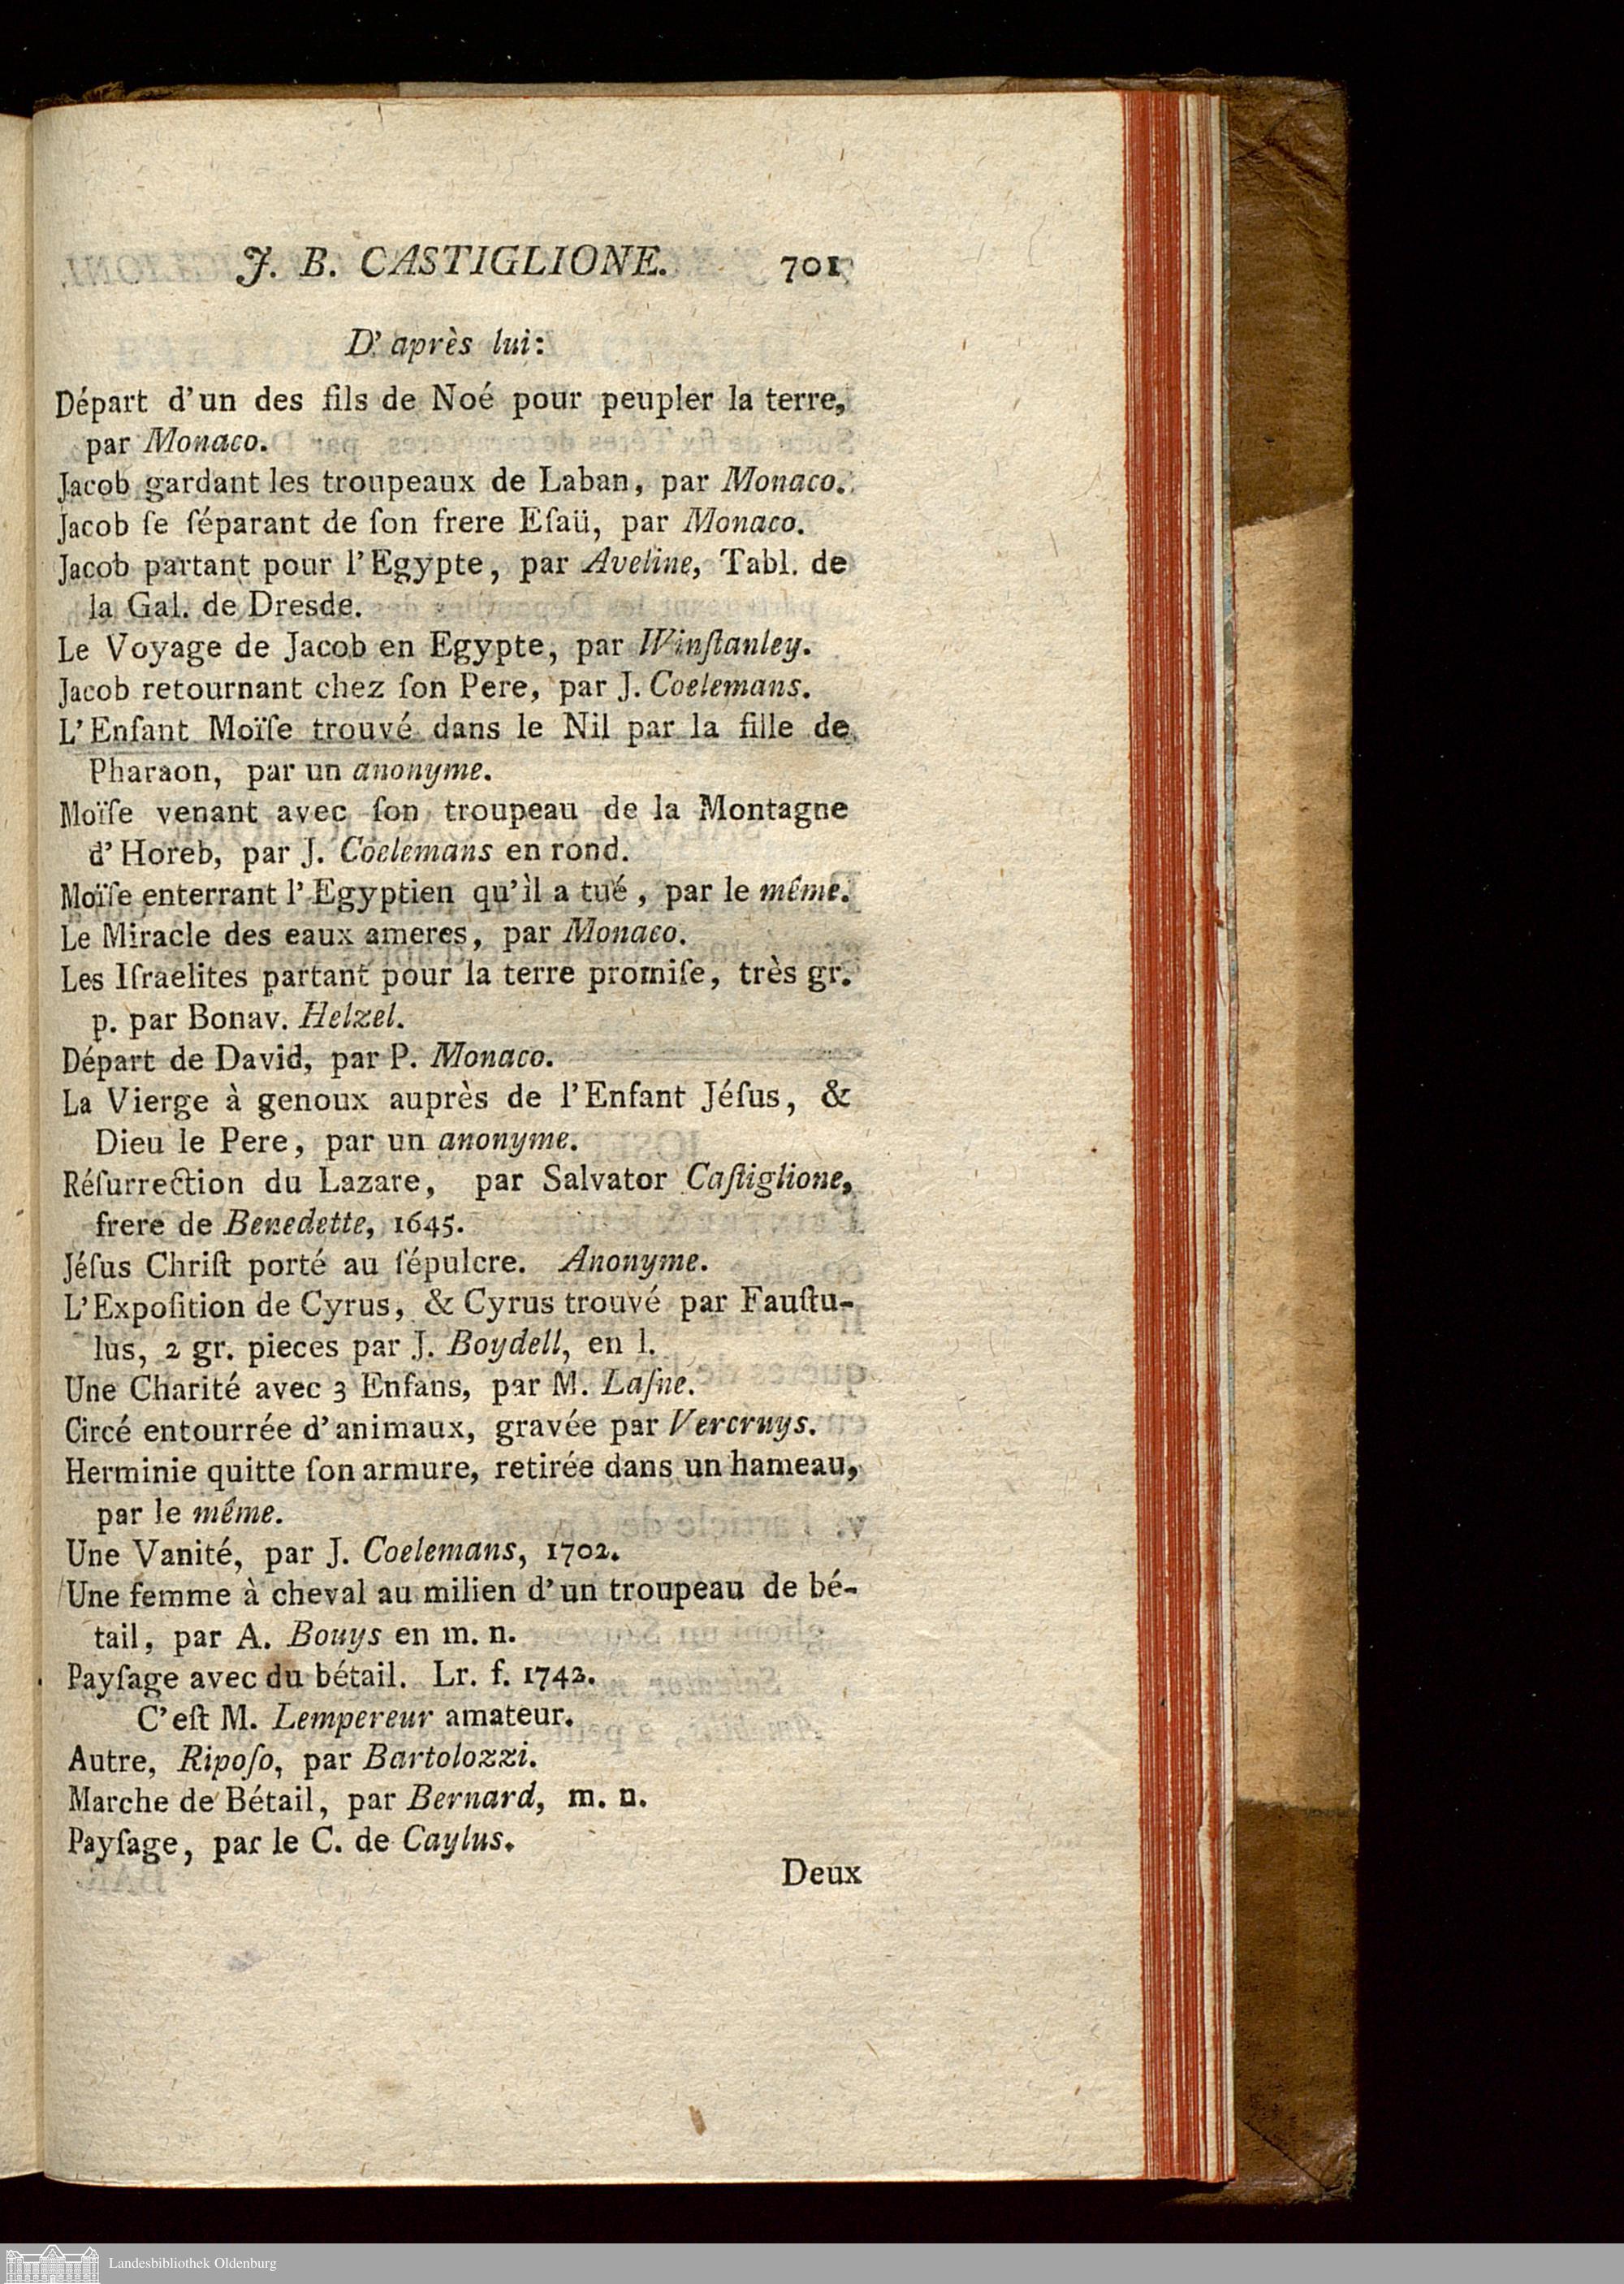 J. B. CASTIGLIONE. 701
D'après lui:
Départ d'un des fils de Noé pour peupler la terre,
par Monaco.
Jacob gardant les troupeaux de Laban, par Monaco.
Jacob ſe ſéparant de ſon frere Eſaü, par Monaco.
Jacob partant pour l'Egypte, par Aveline, Tabl. de
la Gal. de Dresde.
Le Voyage de Jacob en Egypte, par Winſtanley.
Jacob retournant chez ſon Pere, par J. Coelemans.
L'Enfant Moïſe trouvé dans le Nil par la fille de
Pharaon, par un anonyme.
Moïſe venant avec ſon troupeau de la Montagne
d'Horeb, par J. Coelemans en rond.
Moïſe enterrant l'Egyptien qu'ìl a tué, par le même.
Le Miracle des eaux ameres, par Monaco.
Les Iſraelites partant pour la terre promiſe, très gr.
p. par Bonav. Helzel.
Départ de David, par P. Monaco.
La Vierge à genoux auprès de l'Enfant Jéſus, &
Dieu le Pere, par un anonyme.
Réſurrection du Lazare, par Salvator Caſtiglione,
frere de Benedette, 1645.
Jéſus Chriſt porté au ſépulcre. Anonyme.
L'Expoſition de Cyrus, & Cyrus trouvé par Fauſtu-
lus, 2 gr. pieces par J. Boydell, en l.
Une Charité avec 3 Enfans, par M. Laſne.
Circé entourrée d'animaux, gravée par Vercruys.
Herminie quitte ſon armure, retirée dans un hameau,
par le même.
Une Vanité, par J. Coelemans, 1702.
Une femme à cheval au milien d'un troupeau de bé-
tail, par A. Bouys en m. n.
Payſage avec du bétail. Lr. f. 1742.
C'eſt M. Lempereur amateur.
Autre, Ripoſo, par Bartolozzi.
Marche de Bétail, par Bernard, m. n.
Payſage, par le C. de Caylus.
Deux
Landesbibliothek Oldenburg